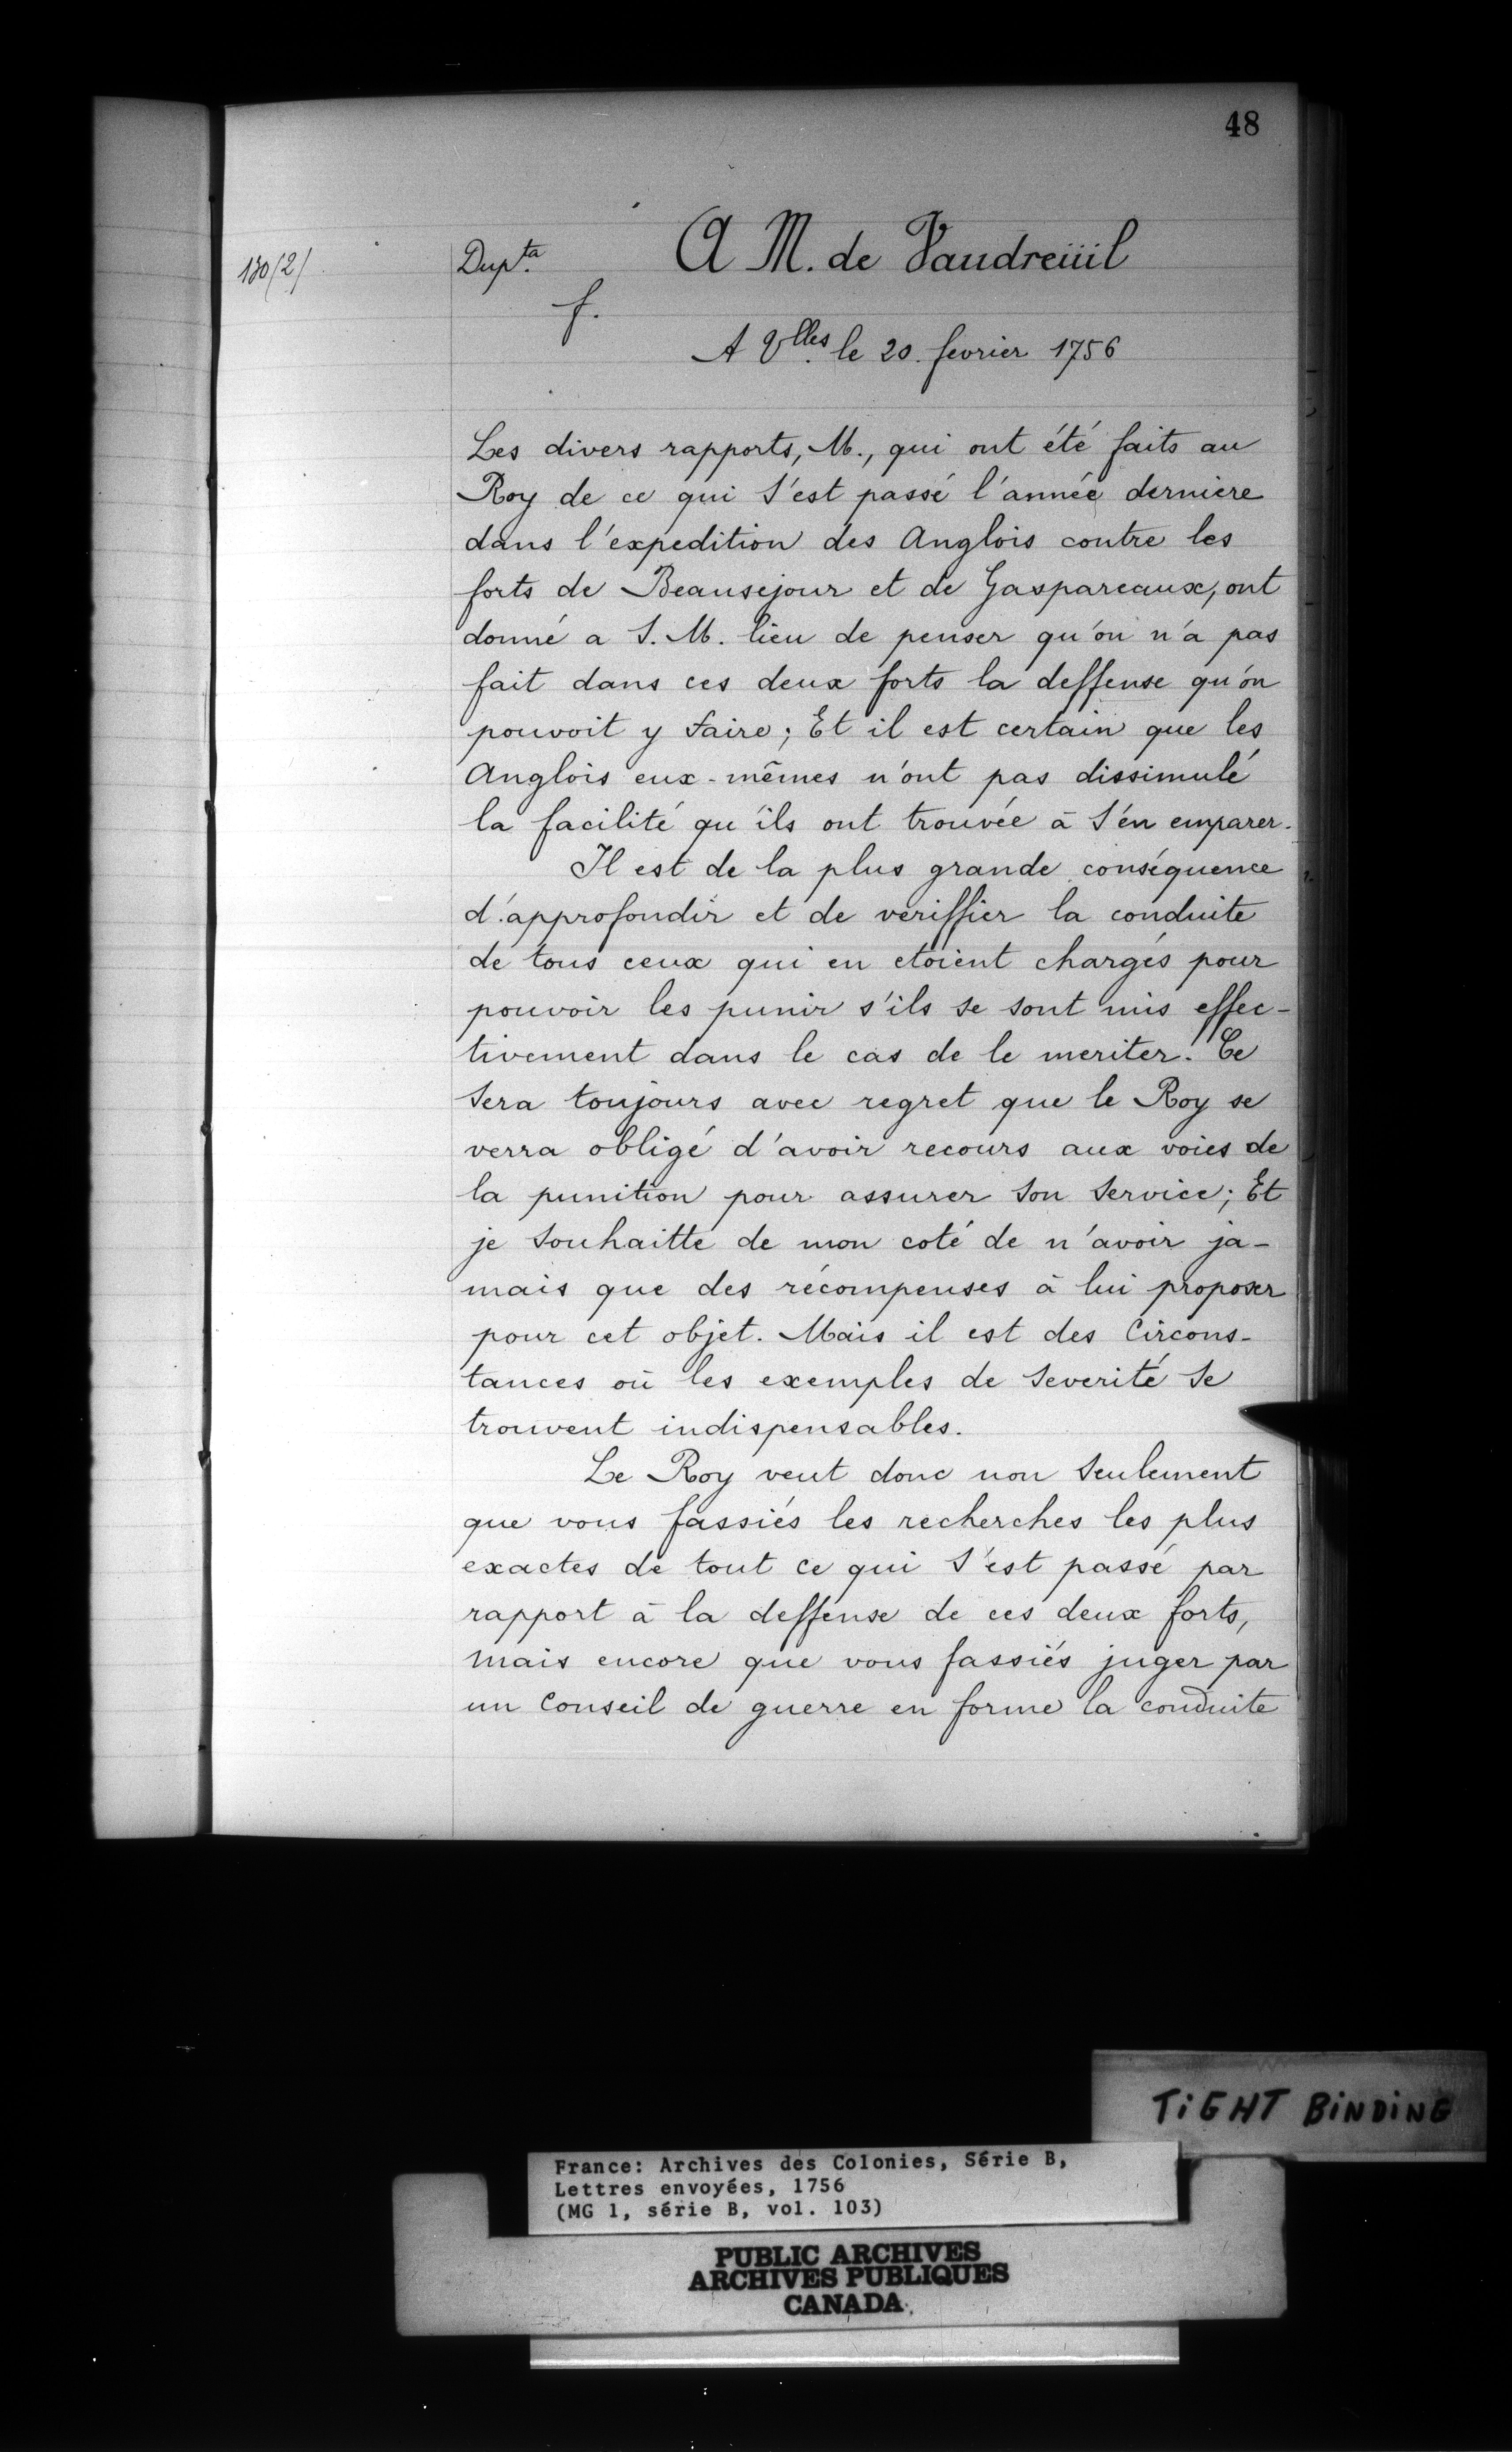 48
130(2)
Dupta.
A M. de Vaudreüil
f.
A Vlles. le 20. fevrier 1756
Les divers rapports, M., qui ont été faits au
Roy de ce qui s'est passé l'année derniere
dans l'expedition des Anglois contre les
forts de Beausejour et de Gaspareaux, ont
donné a S. M. lieu de penser qu'on n'a pas
fait dans ces deux forts la deffense qu'on
pouvoit y faire; Et il est certain que les
Anglois eux-mêmes n'ont pas dissimulé
la facilité qu'ils ont trouvée à s'en emparer.
Il est de la plus grande conséquence
d'approfondir et de veriffier la conduite
de tous ceux qui en etoient chargés pour
pouvoir les punir s'ils se sont mis effec-
tivement dans le cas de le meriter. Ce
sera toujours avec regret que le Roy se
verra obligé d'avoir recours aux voies de
la punition pour assurer son service; Et
je souhaitte de mon coté de n'avoir ja-
mais que des récompenses à lui proposer
pour cet objet. Mais il est des Circons-
tances où les exemples de severité se
trouvent indispensables.
Le Roy veut donc non seulement
que vous fassiés les recherches les plus
exactes de tout ce qui s'est passé par
rapport à la deffense de ces deux forts,
mais encore que vous fassiés juger par
un Conseil de guerre en forme la conduite
TIGHT BINDING
France: Archives des Colonies, Série B,
Lettres envoyées, 1756
(MG 1, série B, vol. 103)
PUBLIC ARCHIVES
ARCHIVES PUBLIQUES
CANADA